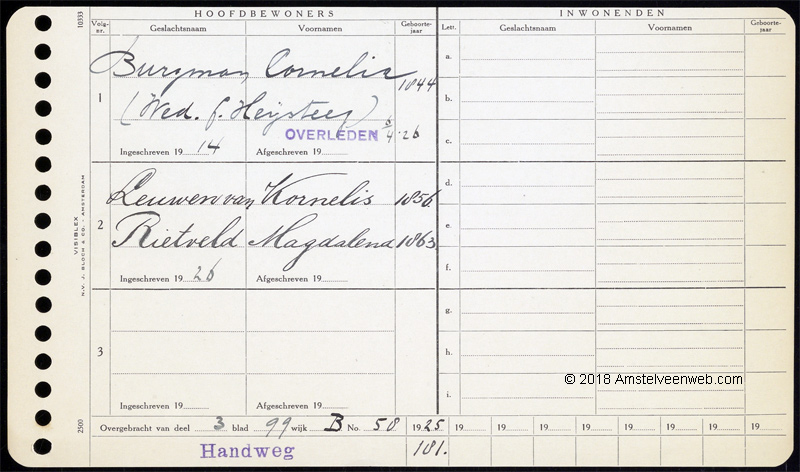 HOOFDBEWONERS
INWONENDEN
10333
Volg-nr.
Geslachtsnaam
Voornamen
Geboorte-jaar
Lett.
Geslachtsnaam
Voornamen
Geboorte-jaar
1
Burgman Cornelis 1844
(Wed. f. Heijsteeg)
OVERLEDEN 5/4-26
Ingeschreven 19 14 Afgeschreven 19
2
Leuwen van Kornelis 1856
Rietveld Magdalena 1863
Ingeschreven 19 26 Afgeschreven 19
3
Ingeschreven 19 Afgeschreven 19
a.
b.
c.
d.
e.
f.
g.
h.
i.
VISIBLEX
N.V. J. BLOCH & CO. - AMSTERDAM
2500
© 2018 Amstelveenweb.com
Overgebracht van deel 3 blad 99 wijk B No. 58 1925 19 19 19 19 19 19 19
Handweg 181.